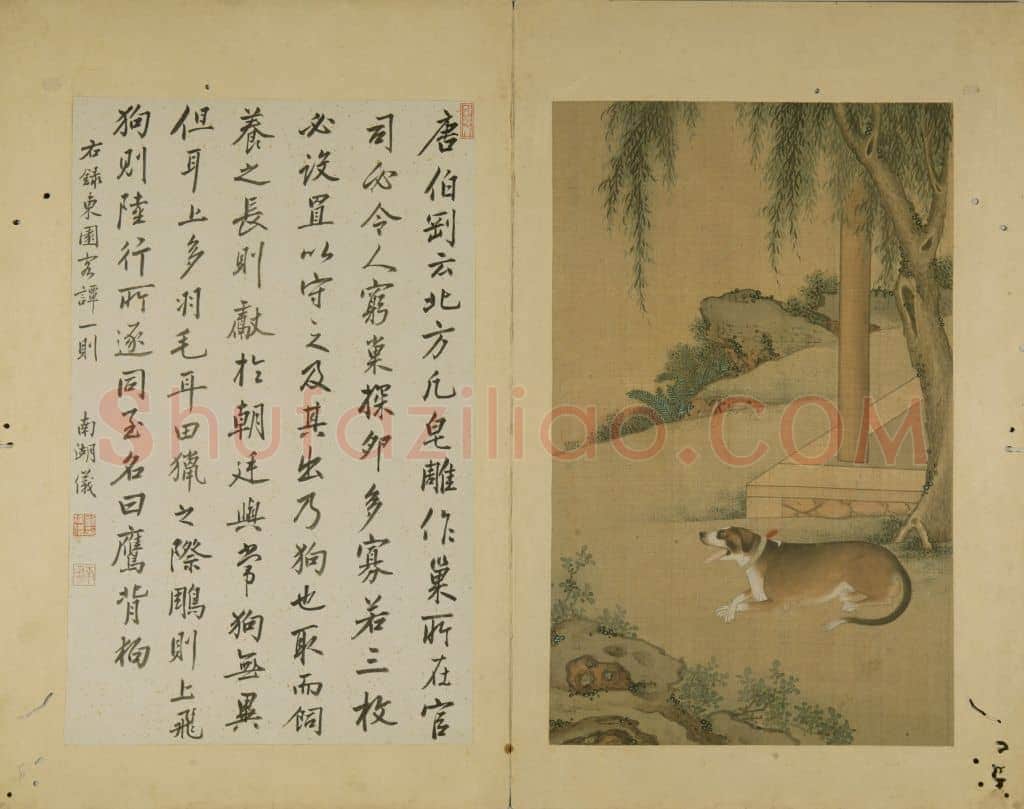 唐伯剛云北方凡皂雕作巢所在官
司必令人窮巢探卵多寡若三枚
必設置以守之及其出乃狗也取而飼
養之長則獻於朝廷與常狗無異
但耳上多羽毛耳田獵之際鵰則上飛
狗則陸行所逐同至名曰鷹背狗
右録東園客譚一則
南湖儀
Shufaziliao.COM